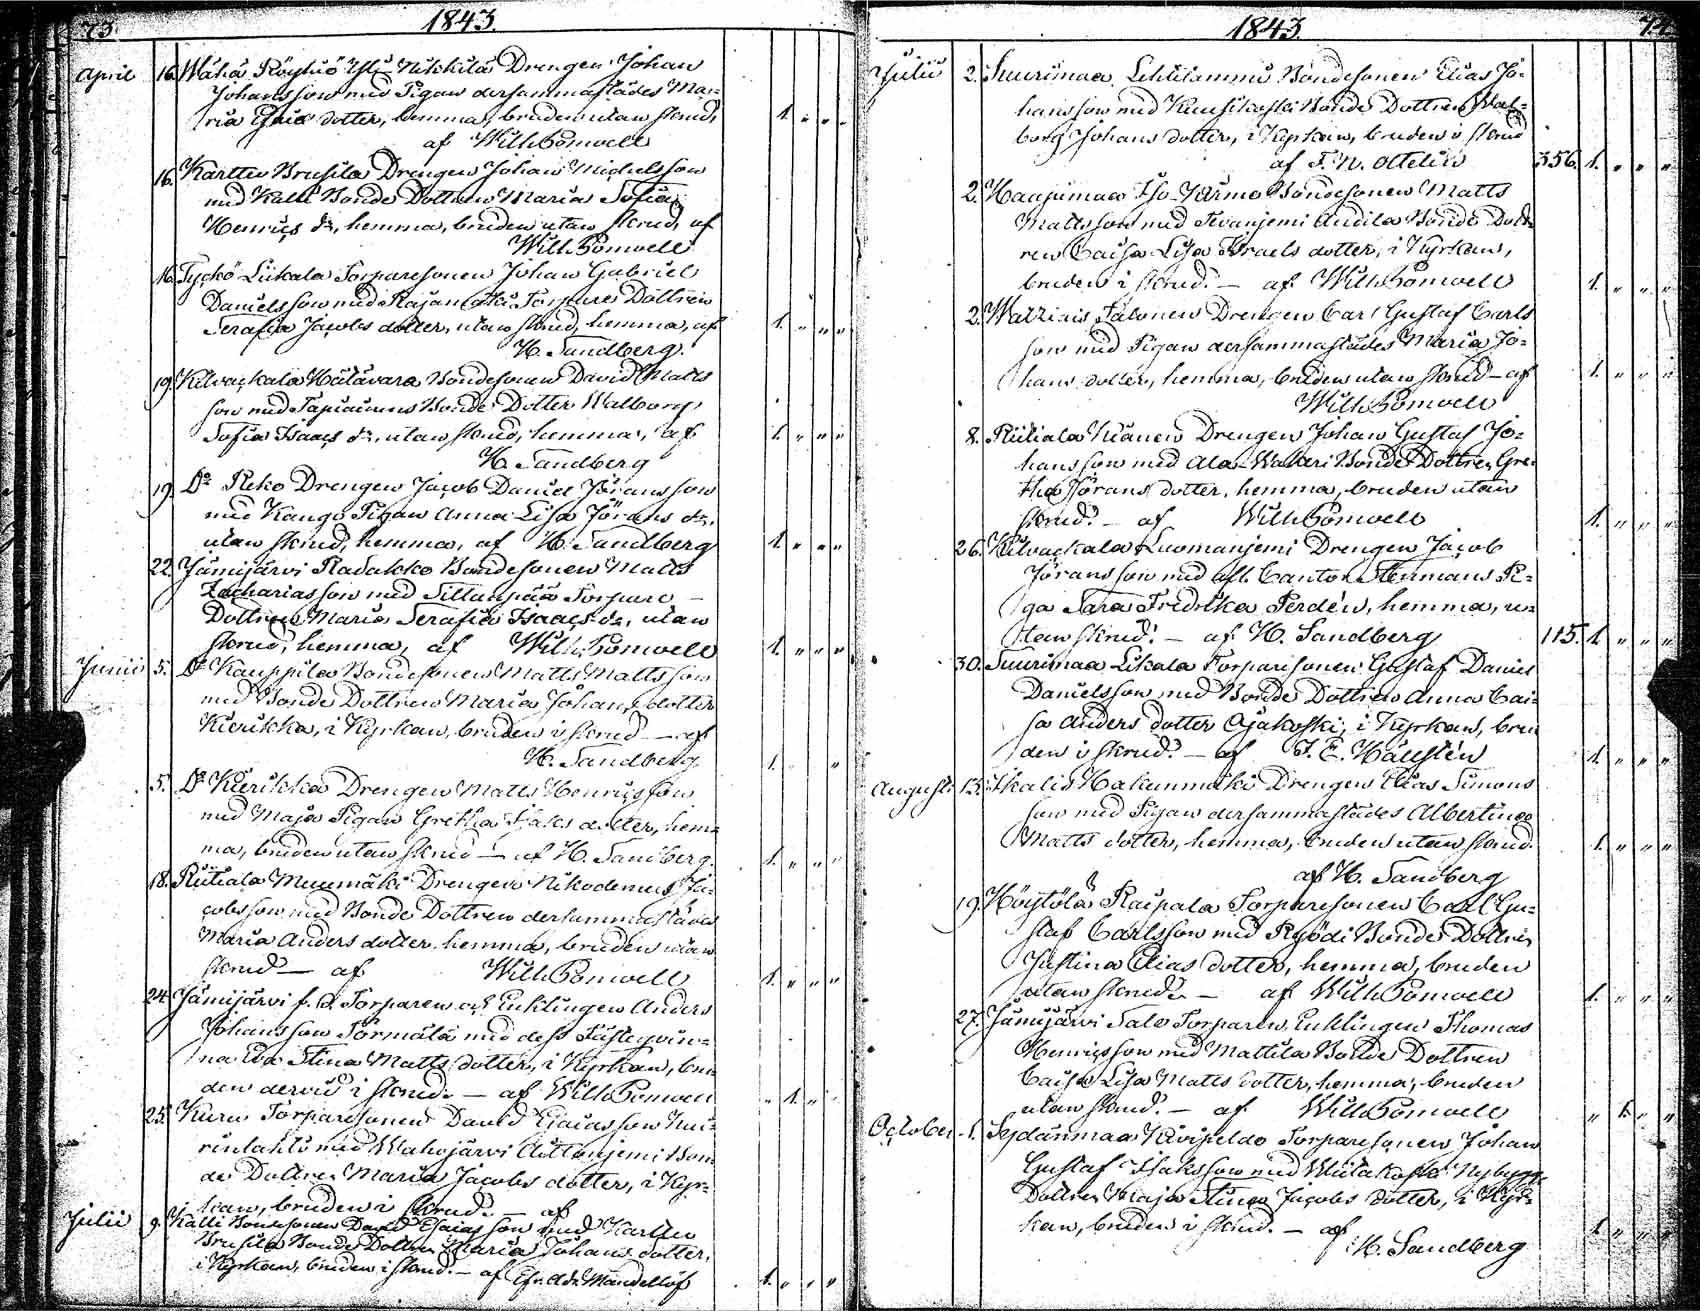 73.
1843.
April 16. Wähä Röyhiö Yli Nikkilä Drengen Johan
Johansson med Pigan dersammastädes Ma-
ria Esaias dotter, hemma, bruden utan skrud, 1. „ „ „
af Wilh. Pomoell
16. Karttu Brusila Drengen Johan Michelsson
med Kalli Bonde Dottren Maria Sofia
Henrics dr, hemma, bruden utan skrud, af
Wilh. Pomoell
16. Tyckö Liikala Torparesonen Johan Gabriel
Danielsson med Rajamäki Torpare Dottren
Serafia Jacobs dotter, utan skrud, hemma, af 1. „ „ „
H. Sandberg.
19. Kilvackala Hätävara Bondesonen David Matts
son med Tapiainens Bonde Dotter Walborg
Sofia Isaacs dr, utan skrud, hemma, af 1. „ „ „
H. Sandberg
19. Do Reko Drengen Jacob Daniel Jöransson
med Kango Pigan Anna Lisa Jörans dr,
utan skrud, hemma, af H. Sandberg 1. „ „ „
22. Jämijärvi Radakko Bondesonen Matts
Zachariasson med Sillanpää Torpare
Dottren Maria Serafia Isaacs dr, utan
skrud, hemma, af Wilh. Pomoell 1. „ „ „
Junii 5. Do Kauppila Bondesonen Matts Mattsson
med Bonde Dottren Maria Johans dotter
Kierikka, i Kyrkan, bruden i skrud — af
H. Sandberg 1. „
5. Do Kierikka Drengen Matts Henricsson
med Maja Pigan Gretha Isaks dotter, hem-
ma, bruden utan skrud — af H. Sandberg. 1. „ „ „
18. Riitiala Mussmäki Drengen Nikodemus Ja-
cobsson med Bonde Dottren dersammastädes
Maria Anders dotter, hemma, bruden utan
skrud — af Wilh. Pomoell 1. „ „ „
24. Jämijärvi f. d. Torparen och Enklingen Anders
Johansson Törmälä med dess Fästeqvin-
na Eva Stina Matts dotter, i Kyrkan, bru-
den dervid i skrud. — af Wilh. Pomoell „ 1. „ „
25. Kuru Torparesonen David Esaiasson
med Wahojärvi Bon-
de Dottren Maria Jacobs dotter, i Kyr-
kan, bruden i skrud. — af
Julii 9. Kalli Bondesonen David Esaiasson med Karttu
Brusila Bonde Dottren Maria Johans dotter,
i Kyrkan, bruden i skrud. — af Mandellöf 1. „ „ „
1843.
Julii 2. Suurimaa Lehtilammi Bondesonen Elias Jo-
hansson med Kuusikoski Bonde Dottren Wal-
borg Johans dotter, i Kyrkan, bruden i skrud
af F. W. Ottelin 356. 1. „ „ „
2. Haapimaa Iso-Järmo Bondesonen Matts
Mattsson med Sivanjemi Andila Bonde Dott-
ren Caisa Lisa Israels dotter, i Kyrkan,
bruden i skrud. — af Wilh. Pomoell 1. „ „ „
2. Watziais Talonen Drengen Carl Gustaf Carls
son med Pigan dersammastädes Maria Jo-
hans dotter, hemma, bruden utan skrud — af 1. „ „ „
Wilh. Pomoell
8. Riitiala Kiänen Drengen Johan Gustaf Jo-
hansson med Ala-Walkeri Bonde Dottren Gre-
tha Jörans dotter, hemma, bruden utan
skrud. — af Wilh. Pomoell 1. „ „ „
26. Kilvackala Luomanjemi Drengen Jacob
Jöransson med afl. Cantor Stenmans Pi-
ga Sara Fredrika Perdén, hemma, u-
tan skrud. — af H. Sandberg 115. 1. „ „ „
30. Suurimaa Likala Torparesonen Gustaf Daniel
Danielsson med Bonde Dottren Anna Cai-
sa Anders dotter Ojakoski, i Kyrkan, bru-
den i skrud. — af F. E. Hällstén 1. „ „ „
Augusti 13. Ikalis Hakunmäki Drengen Elias Simons
son med Pigan dersammastädes Albertina
Matts dotter, hemma, bruden utan skrud. 1. „ „ „
af H. Sandberg
19. Höytölä Raipala Torparesonen Carl Gu-
staf Carlsson med Röödi Bonde Dottren
Justina Elias dotter, hemma, bruden
utan skrud. — af Wilh. Pomoell 1. „ „ „
27. Jämijärvi Salo Torparen, Enklingen Thomas
Henricsson med Mattila Bonde Dottren
Caisa Lisa Matts dotter, hemma, bruden
utan skrud. — af Wilh. Pomoell „ 1. „ „
October 1. Sydänmaa Kivipeldo Torparesonen Johan
Gustaf Isaksson med Nybygg.
Dottren Maja Stina Jacobs dotter, i Kyr-
kan, bruden i skrud. — af 1. „ „ „
H. Sandberg